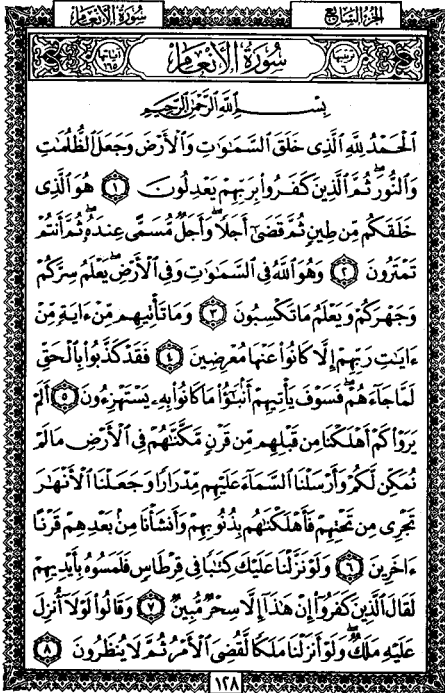 سُورَةُ الأَنْعَامِ
الجُزءُ السَّابِعُ
ترتيبها ٦
سُورَةُ الأَنْعَامِ
آياتها ١٦٥
بِسْمِ ٱللَّهِ ٱلرَّحْمَٰنِ ٱلرَّحِيمِ
ٱلْحَمْدُ لِلَّهِ ٱلَّذِى خَلَقَ ٱلسَّمَٰوَٰتِ وَٱلْأَرْضَ وَجَعَلَ ٱلظُّلُمَٰتِ
وَٱلنُّورَ ۖ ثُمَّ ٱلَّذِينَ كَفَرُوا۟ بِرَبِّهِمْ يَعْدِلُونَ ١ هُوَ ٱلَّذِى
خَلَقَكُم مِّن طِينٍ ثُمَّ قَضَىٰٓ أَجَلًا ۖ وَأَجَلٌ مُّسَمًّى عِندَهُۥ ۖ ثُمَّ أَنتُمْ
تَمْتَرُونَ ٢ وَهُوَ ٱللَّهُ فِى ٱلسَّمَٰوَٰتِ وَفِى ٱلْأَرْضِ ۖ يَعْلَمُ سِرَّكُمْ
وَجَهْرَكُمْ وَيَعْلَمُ مَا تَكْسِبُونَ ٣ وَمَا تَأْتِيهِم مِّنْ ءَايَةٍ مِّنْ
ءَايَٰتِ رَبِّهِمْ إِلَّا كَانُوا۟ عَنْهَا مُعْرِضِينَ ٤ فَقَدْ كَذَّبُوا۟ بِٱلْحَقِّ
لَمَّا جَآءَهُمْ ۖ فَسَوْفَ يَأْتِيهِمْ أَنۢبَٰٓؤُا۟ مَا كَانُوا۟ بِهِۦ يَسْتَهْزِءُونَ ٥ أَلَمْ
يَرَوْا۟ كَمْ أَهْلَكْنَا مِن قَبْلِهِم مِّن قَرْنٍ مَّكَّنَّٰهُمْ فِى ٱلْأَرْضِ مَا لَمْ
نُمَكِّن لَّكُمْ وَأَرْسَلْنَا ٱلسَّمَآءَ عَلَيْهِم مِّدْرَارًا وَجَعَلْنَا ٱلْأَنْهَٰرَ
تَجْرِى مِن تَحْتِهِمْ فَأَهْلَكْنَٰهُم بِذُنُوبِهِمْ وَأَنشَأْنَا مِنۢ بَعْدِهِمْ قَرْنًا
ءَاخَرِينَ ٦ وَلَوْ نَزَّلْنَا عَلَيْكَ كِتَٰبًا فِى قِرْطَاسٍ فَلَمَسُوهُ بِأَيْدِيهِمْ
لَقَالَ ٱلَّذِينَ كَفَرُوٓا۟ إِنْ هَٰذَآ إِلَّا سِحْرٌ مُّبِينٌ ٧ وَقَالُوا۟ لَوْلَآ أُنزِلَ
عَلَيْهِ مَلَكٌ ۖ وَلَوْ أَنزَلْنَا مَلَكًا لَّقُضِىَ ٱلْأَمْرُ ثُمَّ لَا يُنظَرُونَ ٨
١٢٨